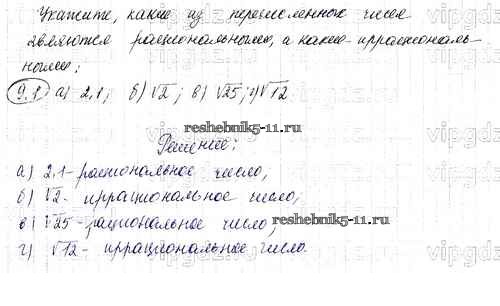 Укажите, какие из перечисленных чисел
являются рациональными, а какие - иррациональ-
ными:
9.1 а) 2,1; б) √2; в) √25; г) √12.
reshebnik5-11.ru
Решение:
а) 2,1 - рациональное число;
б) √2 - иррациональное число;
в) √25 - рациональное число;
reshebnik5-11.ru
г) √12 - иррациональное число.